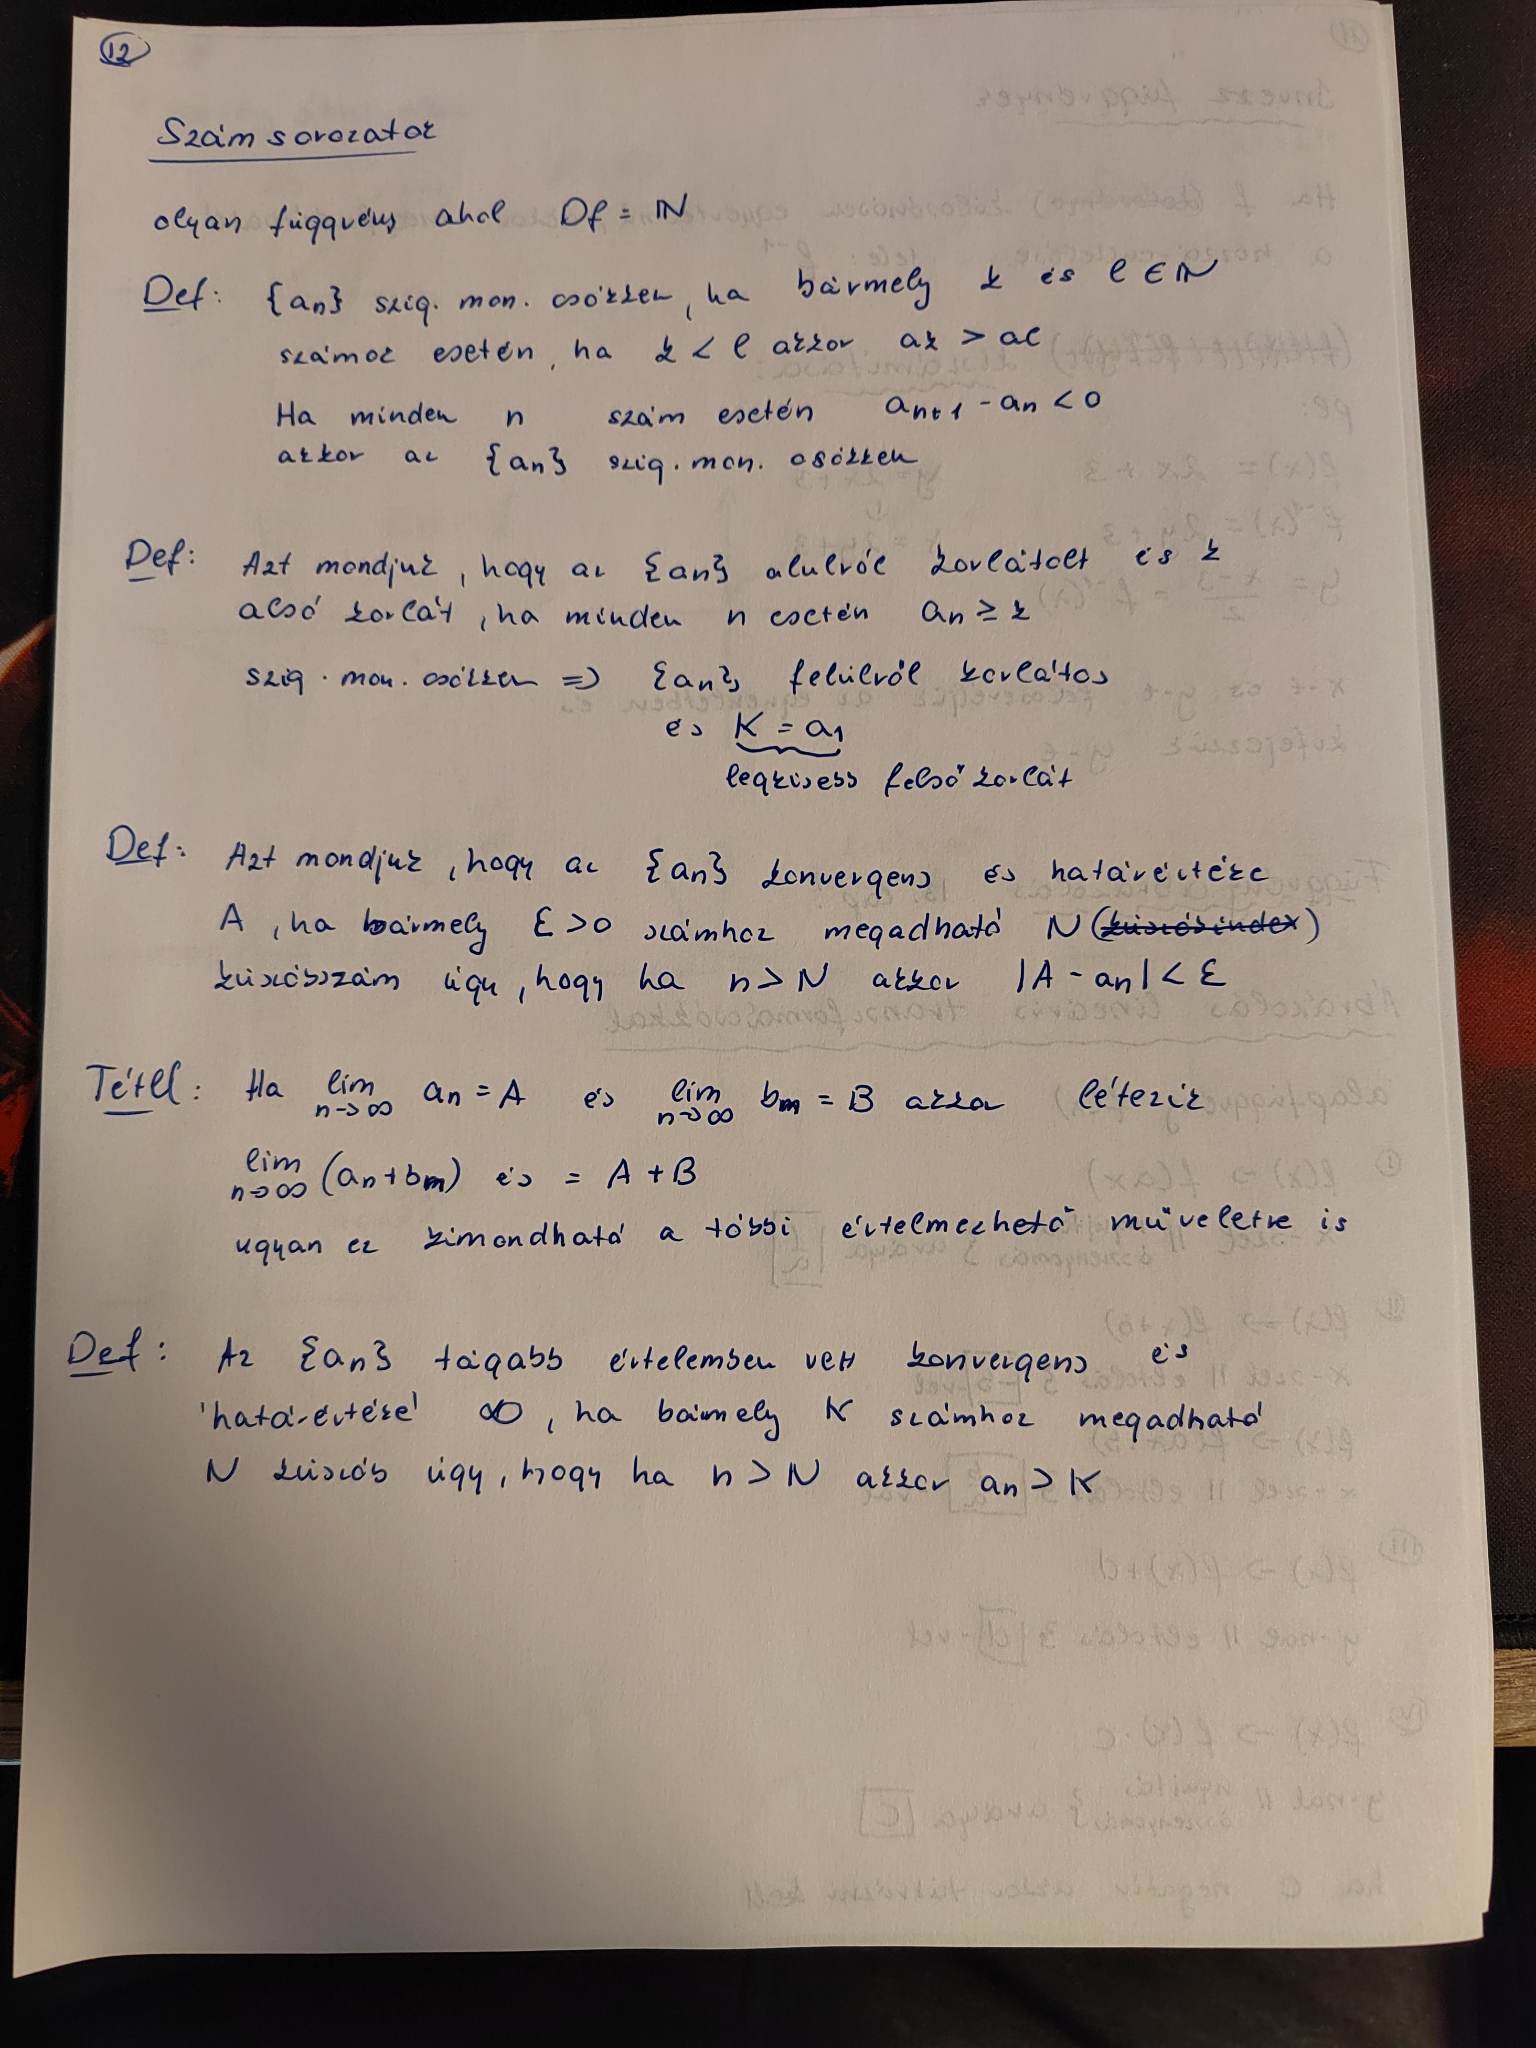 12
Számsorozatok
olyan függvény ahol Df = ℕ
Def: {an} szig. mon. csökken, ha bármely k és l ∈ ℕ
számok esetén, ha k < l akkor ak > al
Ha minden n szám esetén an+1 - an < 0
akkor az {an} szig. mon. csökken
Def: Azt mondjuk, hogy az {an} alulról korlátolt és k
alsó korlát, ha minden n esetén an ≥ k
szig. mon. csökken => {an} felülről korlátos
és K = a1
legkisebb felső korlát
Def: Azt mondjuk, hogy az {an} konvergens és határértéke
A, ha bármely ε > 0 számhoz megadható N (küszöbindex)
küszöbszám úgy, hogy ha n > N akkor |A - an| < ε
Tétel: Ha lim n->∞ an = A és lim n->∞ bm = B akkor létezik
lim n->∞ (an + bm) és = A + B
ugyan ez kimondható a többi értelmezhető műveletre is
Def: Az {an} tágabb értelemben vett konvergens és
'határértéke' ∞, ha bármely K számhoz megadható
N küszöb úgy, hogy ha n > N akkor an > K